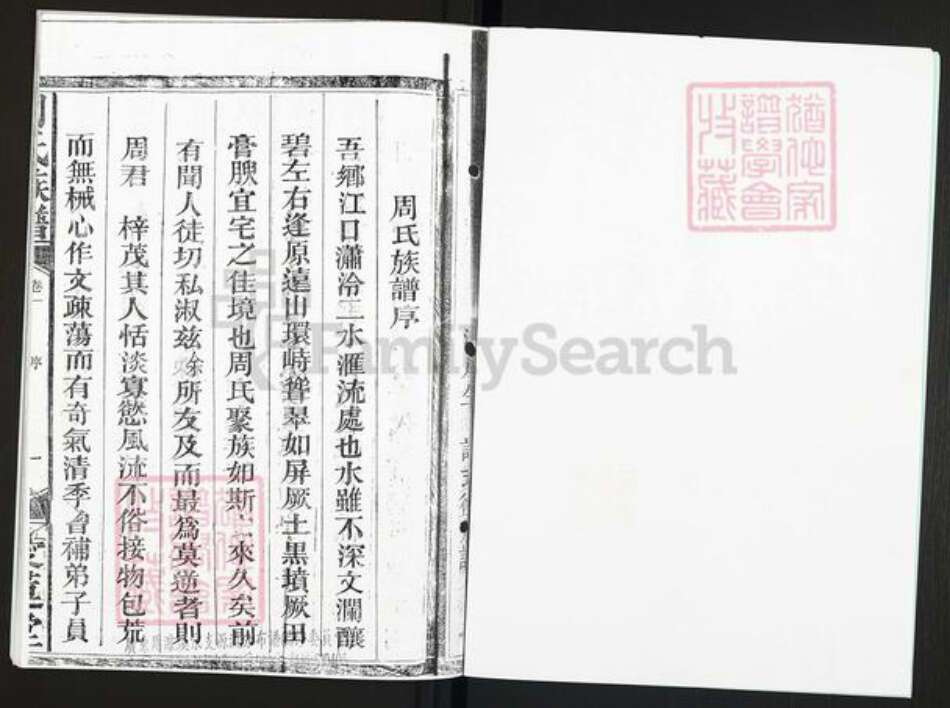 周氏族譜序
吾鄉江口瀟泠二水滙流處也水雖不深文瀾釀
碧左右逢原遠山環峙聳翠如屏厥土黑墳厥田
膏腴宜宅之佳境也周氏聚族如斯 來久矣前
有聞人徒切私淑茲馀所友及而最為莫逆者則
周君 梓茂其人恬淡寡慾風流不俗接物包荒
而無械心作文疎蕩而有奇氣清季曾補弟子員
卷一
序
一
猶他家
譜學會
收藏
FamilySearch